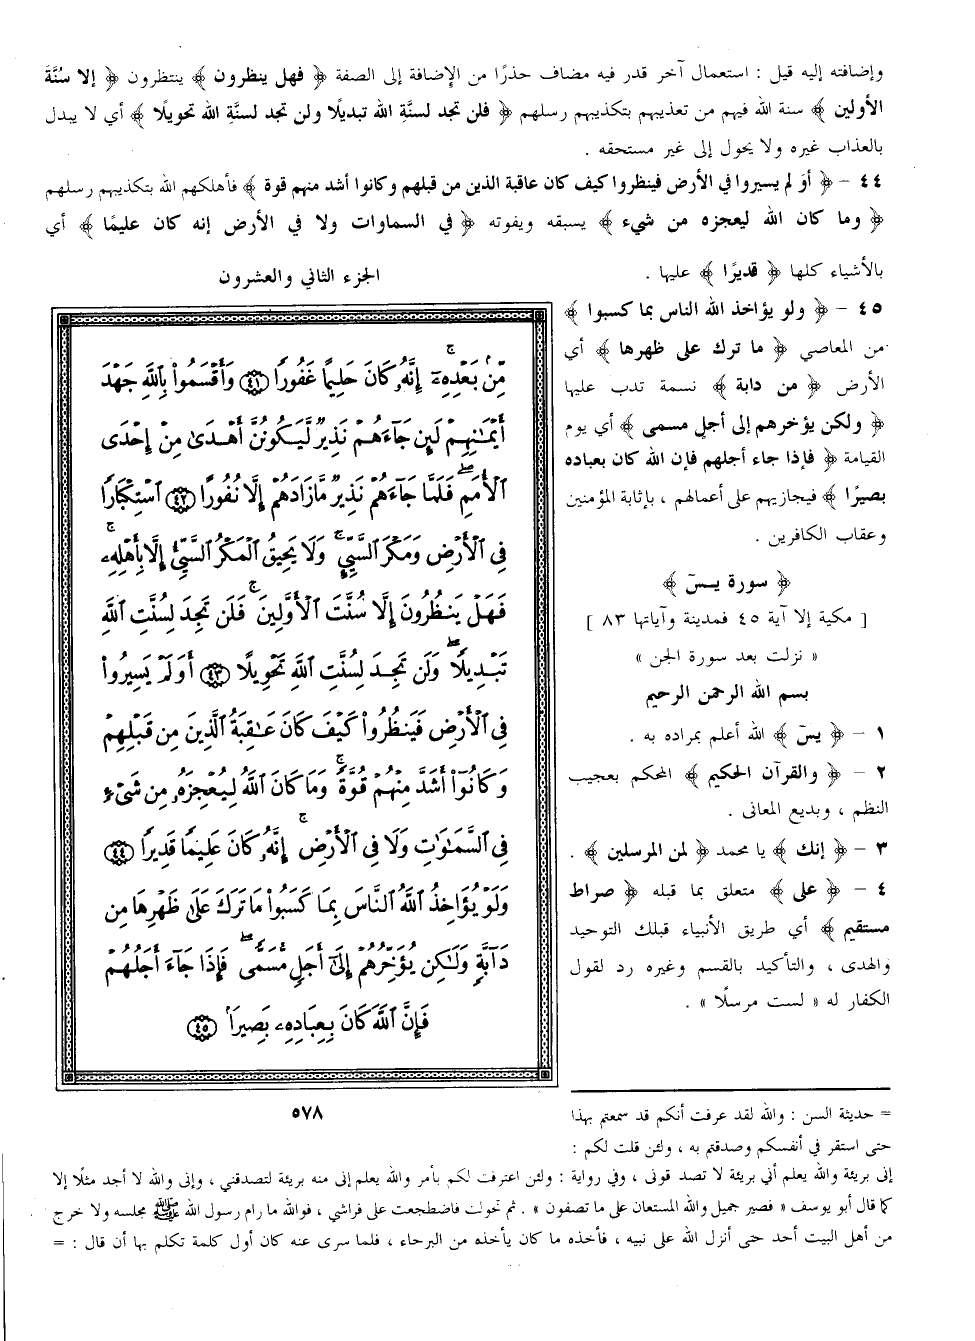 وإضافته إليه قيل : استعمال آخر قدر فيه مضاف حذرًا من الإضافة إلى الصفة ﴿ فهل ينظرون ﴾ ينتظرون ﴿ إلا سُنَّةَ
الأولين ﴾ سنة الله فيهم من تعذيبهم بتكذيبهم رسلهم ﴿ فلن تجد لسنَّةِ الله تبديلًا ولن تجد لسنَّةِ الله تحويلًا ﴾ أي لا يبدل
بالعذاب غيره ولا يحول إلى غير مستحقه .
٤٤ - ﴿ أوَ لم يسيروا في الأرض فينظروا كيف كان عاقبة الذين من قبلهم وكانوا أشد منهم قوة ﴾ فأهلكهم الله بتكذيبهم رسلهم
﴿ وما كان الله ليعجزه من شيء ﴾ يسبقه ويفوته ﴿ في السماوات ولا في الأرض إنه كان عليمًا ﴾ أي
بالأشياء كلها ﴿ قديرًا ﴾ عليها .
٤٥ - ﴿ ولو يؤاخذ الله الناس بما كسبوا ﴾
من المعاصي ﴿ ما ترك على ظهرها ﴾ أي
الأرض ﴿ من دابة ﴾ نسمة تدب عليها
﴿ ولكن يؤخرهم إلى أجل مسمى ﴾ أي يوم
القيامة ﴿ فإذا جاء أجلهم فإن الله كان بعباده
بصيرًا ﴾ فيجازيهم على أعمالهم ، بإثابة المؤمنين
وعقاب الكافرين .
﴿ سورة يـسٓ ﴾
[ مكية إلا آية ٤٥ فمدينة وآياتها ٨٣ ]
« نزلت بعد سورة الجن »
بسم الله الرحمن الرحيم
١ - ﴿ يسٓ ﴾ الله أعلم بمراده به .
٢ - ﴿ والقرآن الحكيم ﴾ المحكم بعجيب
النظم ، وبديع المعانى .
٣ - ﴿ إنك ﴾ يا محمد ﴿ لمن المرسلين ﴾ .
٤ - ﴿ على ﴾ متعلق بما قبله ﴿ صراط
مستقيم ﴾ أي طريق الأنبياء قبلك التوحيد
والهدى ، والتأكيد بالقسم وغيره رد لقول
الكفار له « لست مرسلًا » .
الجزء الثاني والعشرون
مِّنۢ بَعْدِهِۦٓ ۚ إِنَّهُۥ كَانَ حَلِيمًا غَفُورًا ﴿٤١﴾ وَأَقْسَمُوا۟ بِٱللَّهِ جَهْدَ
أَيْمَـٰنِهِمْ لَئِن جَآءَهُمْ نَذِيرٌ لَّيَكُونُنَّ أَهْدَىٰ مِنْ إِحْدَى
ٱلْأُمَمِ ۖ فَلَمَّا جَآءَهُمْ نَذِيرٌ مَّا زَادَهُمْ إِلَّا نُفُورًا ﴿٤٢﴾ ٱسْتِكْبَارًا
فِى ٱلْأَرْضِ وَمَكْرَ ٱلسَّيِّئِ ۚ وَلَا يَحِيقُ ٱلْمَكْرُ ٱلسَّيِّئُ إِلَّا بِأَهْلِهِۦ ۚ
فَهَلْ يَنظُرُونَ إِلَّا سُنَّتَ ٱلْأَوَّلِينَ ۚ فَلَن تَجِدَ لِسُنَّتِ ٱللَّهِ
تَبْدِيلًا ۖ وَلَن تَجِدَ لِسُنَّتِ ٱللَّهِ تَحْوِيلًا ﴿٤٣﴾ أَوَلَمْ يَسِيرُوا۟
فِى ٱلْأَرْضِ فَيَنظُرُوا۟ كَيْفَ كَانَ عَـٰقِبَةُ ٱلَّذِينَ مِن قَبْلِهِمْ
وَكَانُوٓا۟ أَشَدَّ مِنْهُمْ قُوَّةً ۚ وَمَا كَانَ ٱللَّهُ لِيُعْجِزَهُۥ مِن شَىْءٍ
فِى ٱلسَّمَـٰوَٰتِ وَلَا فِى ٱلْأَرْضِ ۚ إِنَّهُۥ كَانَ عَلِيمًا قَدِيرًا ﴿٤٤﴾
وَلَوْ يُؤَاخِذُ ٱللَّهُ ٱلنَّاسَ بِمَا كَسَبُوا۟ مَا تَرَكَ عَلَىٰ ظَهْرِهَا مِن
دَآبَّةٍ وَلَـٰكِن يُؤَخِّرُهُمْ إِلَىٰٓ أَجَلٍ مُّسَمًّى ۖ فَإِذَا جَآءَ أَجَلُهُمْ
فَإِنَّ ٱللَّهَ كَانَ بِعِبَادِهِۦ بَصِيرًۢا ﴿٤٥﴾
٥٧٨
= حديثة السن : والله لقد عرفت أنكم قد سمعتم بهذا
حتى استقر في أنفسكم وصدقتم به ، ولئن قلت لكم :
إنى بريئة والله يعلم أني بريئة لا تصد قونى ، وفي رواية : ولئن اعترفت لكم بأمر والله يعلم إنى منه بريئة لتصدقني ، وإنى والله لا أجد مثلًا إلا
كما قال أبو يوسف « فصبر جميل والله المستعان على ما تصفون » . ثم تحولت فاضطجعت على فراشي ، فوالله ما رام رسول الله ﷺ مجلسه ولا خرج
من أهل البيت أحد حتى أنزل الله على نبيه ، فأخذه ما كان يأخذه من البرحاء ، فلما سرى عنه كان أول كلمة تكلم بها أن قال : =